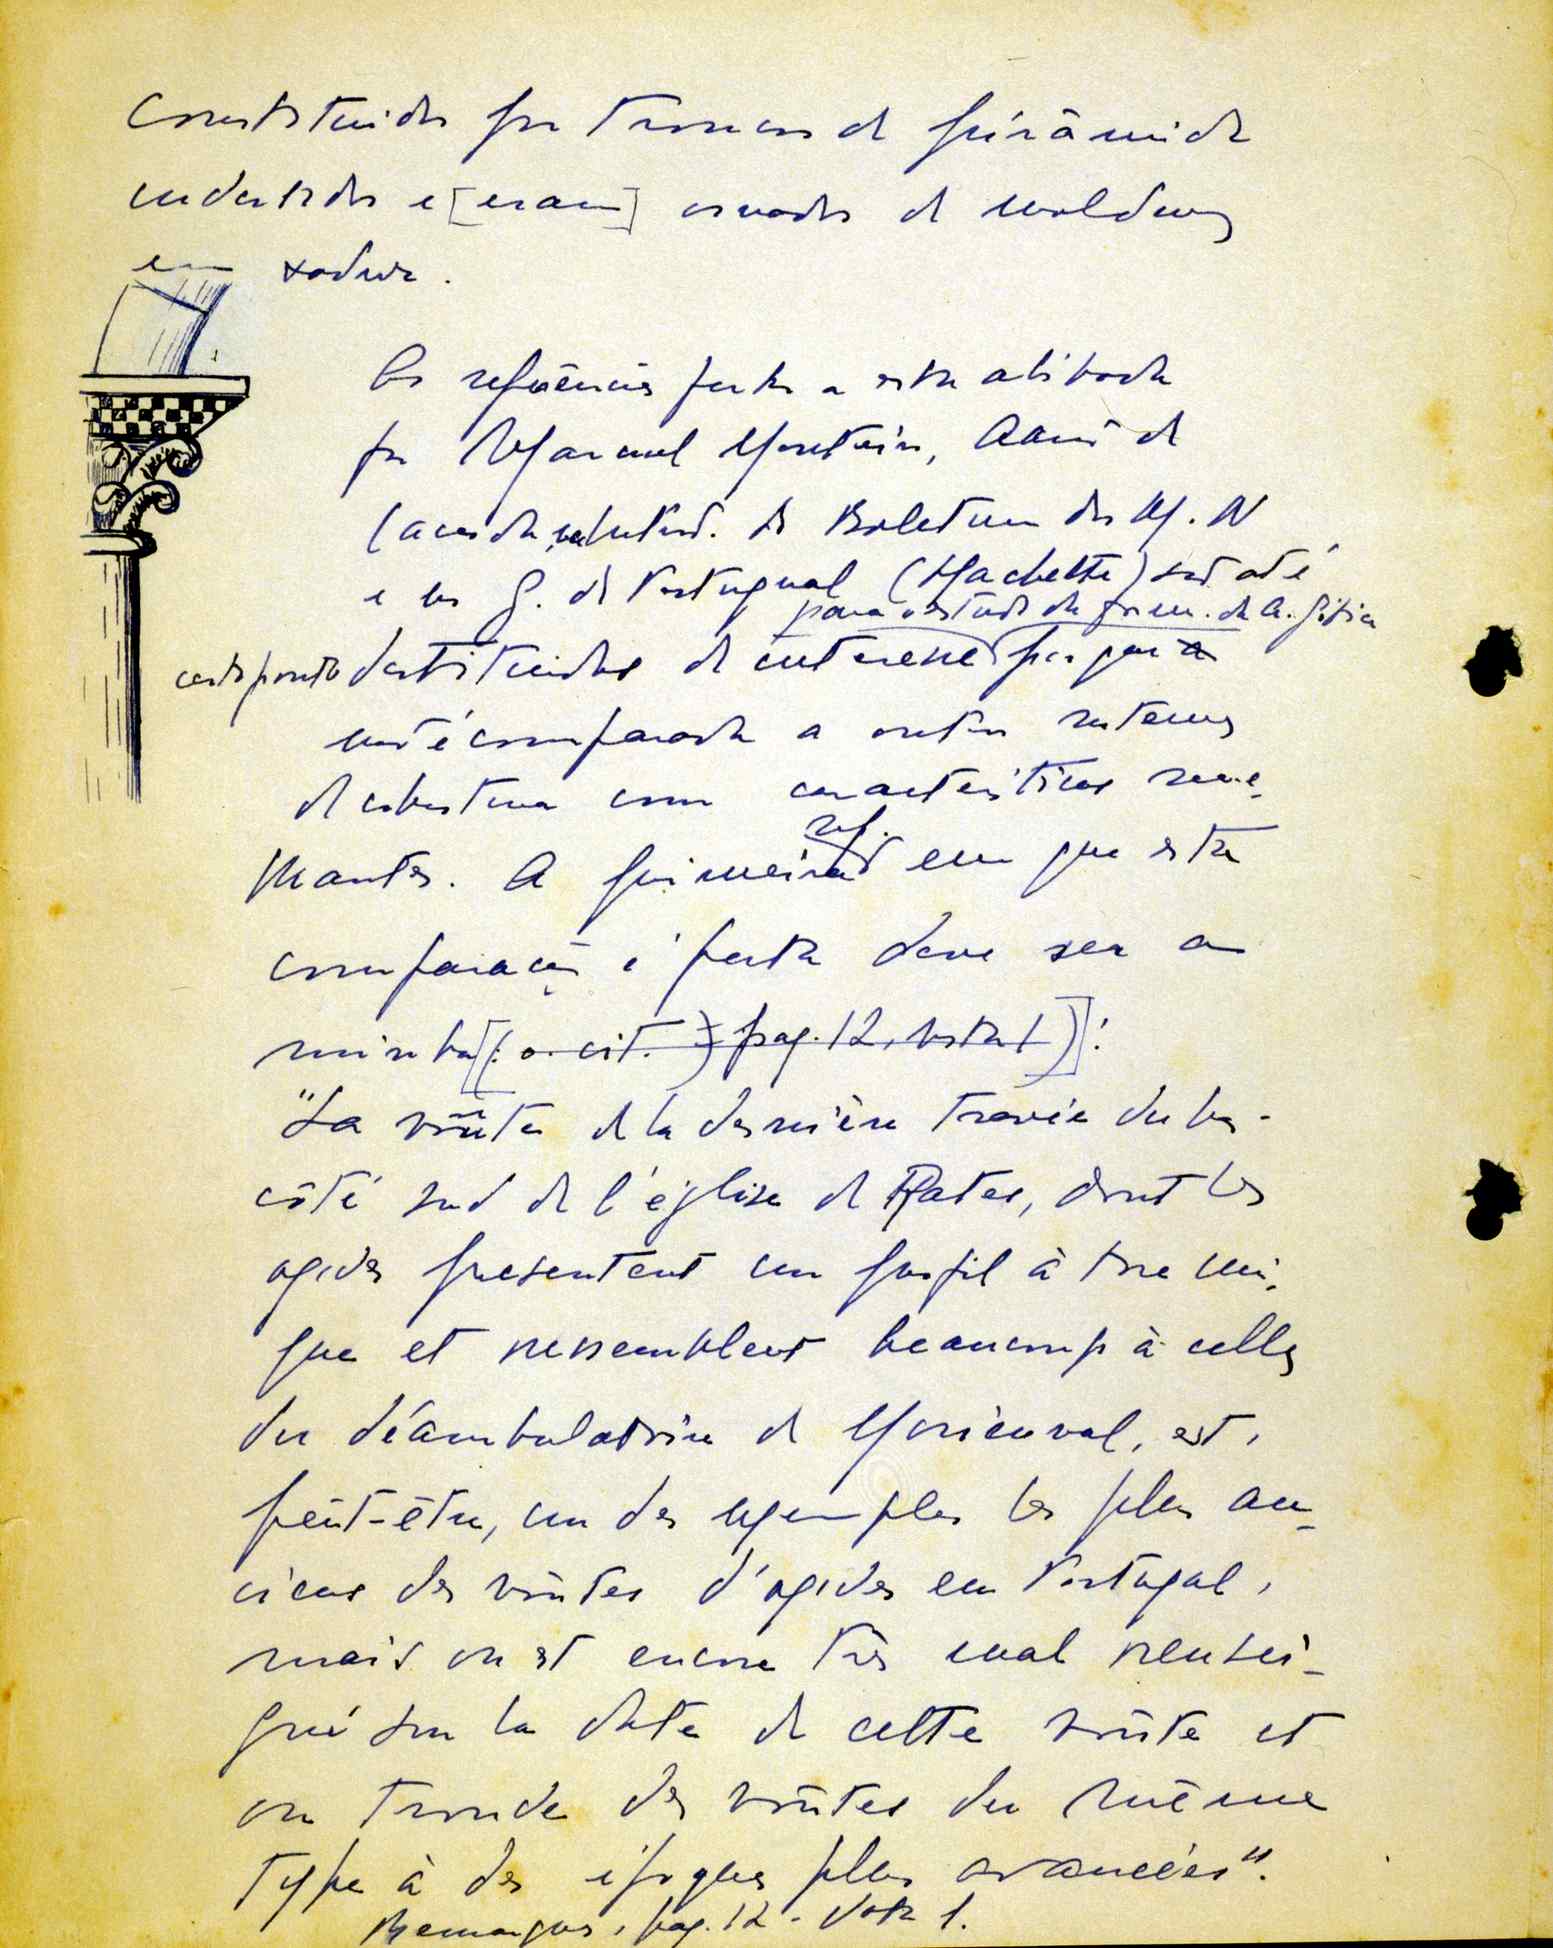 constituidos por troncos de pirâmide
invertidos e [eram] ornados de molduras
em xadrez.
As referências feitas a esta abóbada
por Manuel Monteiro, Aarão de
Lacerda, do Boletim dos M. N
e do G. de Portugal (Hachette) são até
para o estudo da arq.
certo ponto destituidas de interesse porque
não é comparada a outros sistemas
de cobertura com caracteristicas seme-
lhantes. A primeira ref. em que esta
comparação é feita deve ser a
minha [(: o. cit. ) pag. 12, nota 1)]:
"La voûte de la dernière travée du bas-
côté sud de l'église de Rates, dont les
ogives présentent un profil à tore uni-
que et ressemblent beaucoup à celles
du déambulatoire de Morienval, est,
peut-être, un des exemples les plus an-
ciens des voûtes d'ogives en Portugal,
mais on est encore très mal rensei-
gné sur la date de cette voûte et
on trouve des voûtes du même
type à des époques plus avancées".
Remarques, pag. 12 - Nota 1.